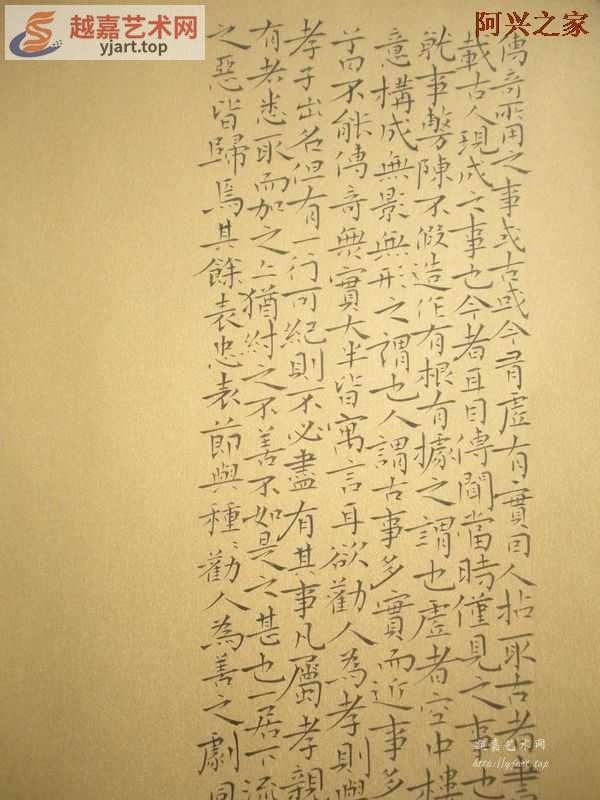 越嘉艺术网
yjart.top
阿兴之家
傳奇所用之事或古或今有虛有實曰人拈取古者書
載古人現成之事也今者耳目傳聞當時僅見之事也
就事敷陳不假造作有根有據之謂也虛者空中樓
意構成無景無形之謂也人謂古事多實而近事多
曰不能傳奇無實大半皆寓言耳欲勸人為孝則舉
孝子出名但有一行可紀則不必盡有其事凡屬孝親
有者悉取而加之上猶紂之不善不如是之甚也一居下流
之惡皆歸焉其餘表忠表節與種〻勸人為善之劇同
越嘉艺术网
http://yjart.top